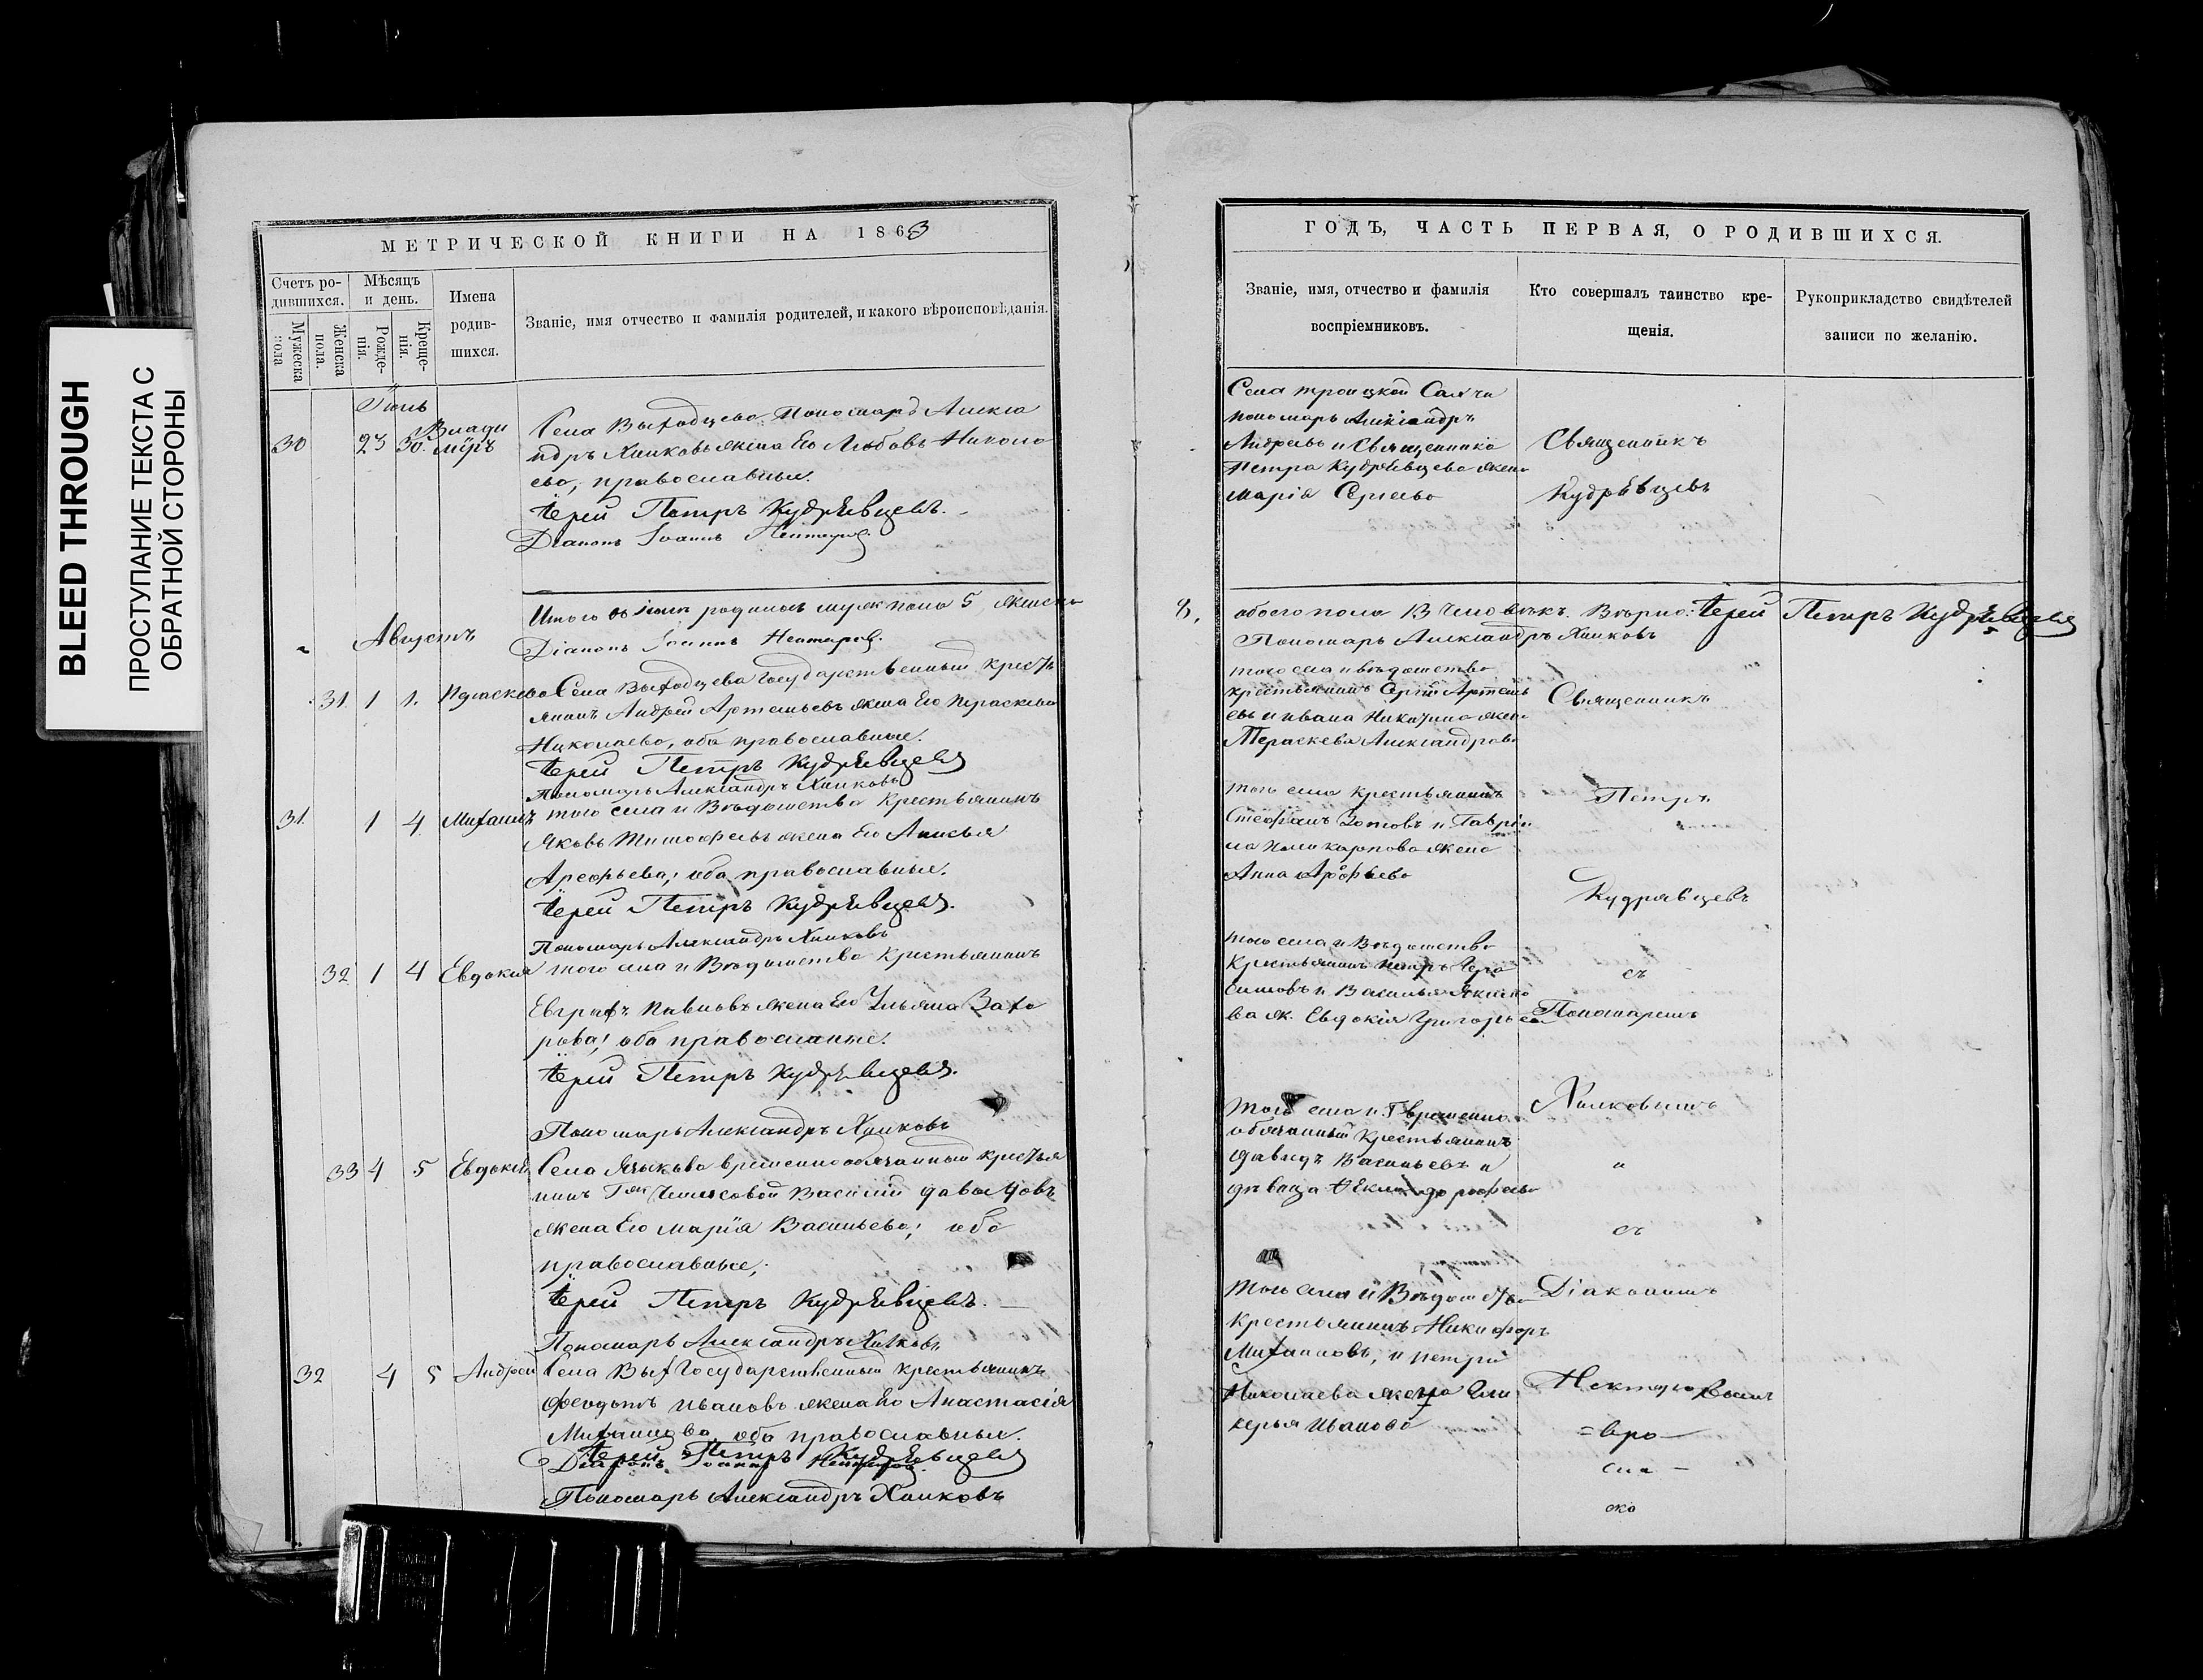 BLEED THROUGH
ПРОСТУПАНИЕ ТЕКСТА С
ОБРАТНОЙ СТОРОНЫ
МЕТРИЧЕСКОЙ КНИГИ НА 1863
Счетъ ро-
дившихся.
Мужеска
пола
Женска
пола.
Мѣсяцъ
и день.
Рожде-
нія.
Креще-
нія.
Имена
родив-
шихся.
Званіе, имя отчество и фамилія родителей, и какого вѣроисповѣданія.
Іюль
30 23 30. Влади
міръ
Села Выходцева Пономарь Алекса
ндръ Хилковъ жена Его Любовь Никола
ева, православные.
Іерей Петръ Кудрявцевъ.
Діаконъ Іоаннъ
Итого въ Іюлѣ родилось муж пола 5, женска
Августъ
Діаконъ Іоаннъ Нектаровъ.
31 1 1. Параскева
Села Выходцева Государственный кресть
янинъ Андрей Артемьевъ жена Его Параскева
Николаева, оба православные.
Іерей Петръ Кудрявцевъ
Пономарь Александръ Хилковъ
31 1 4 Михаилъ
того села и Вѣдомства Крестьянинъ
Яковъ Тимофеевъ жена Его Анисья
Арефьева; оба православные.
Іерей Петръ Кудрявцевъ.
Пономарь Александръ Хилковъ
32 1 4 Евдокия
того села и Вѣдомства Крестьянинъ
Евграфъ Павловъ жена Его Ульяна Заха
рова; оба
Іерей Петръ Кудрявцевъ.
Пономарь Александръ Хилковъ
33 4 5 Евдокія
Села Языкова временнообязанный крестья
нинъ Гжи Василий Давыдовъ
жена Его Марія Васильева; оба
православные;
Іерей Петръ Кудрявцевъ.
Пономарь Александръ Хилковъ
32 4 5 Андрей
Села Вых Государственный крестьянинъ
Феодотъ Ивановъ жена Его Анастасія
Михайлова, оба православные.
Іерей Петръ Кудрявцевъ
Діаконъ Іоаннъ Нектаровъ.
Пономарь Александръ Хилковъ
ГОДЪ, ЧАСТЬ ПЕРВАЯ, О РОДИВШИХСЯ.
Званіе, имя, отчество и фамилія
воспріемниковъ.
Кто совершалъ таинство кре-
щенія.
Рукоприкладство свидѣтелей
записи по желанію.
Села троицкой
пономарь Александръ
Андреевъ и Священника
Петра Кудрявцева жена
Марія Сергеева
Священникъ
Кудрявцевъ
8, обоего пола 13 человѣкъ. Вѣрно: Іерей Петръ Кудрявцевъ
Пономарь Александръ Хилковъ
того села и вѣдомства
крестьянинъ Сергій Артемь
евъ и ивана Никитина жена
Параскева Александрова
Священникъ
того села крестьянинъ
Стефанъ Зотовъ и Гаврии
ла жена
Анна Арефьева
Петръ
Кудрявцевъ
того села и Вѣдомства
Крестьянинъ петръ Гера
симовъ и Василья
ва ж. Евдокія Григорьева
съ
Пономаремъ
того села и Г временно
обязанный Крестьянинъ
Давидъ Васильевъ и
дѣвица Ѳекла дорофеева
Хилковымъ
и
съ
того села и Вѣдомства
Крестьянинъ Никифоръ
Михаиловъ, и
Николаева жена
Иванова
Діакономъ
Нектаровымъ
=вро-
сил-
око